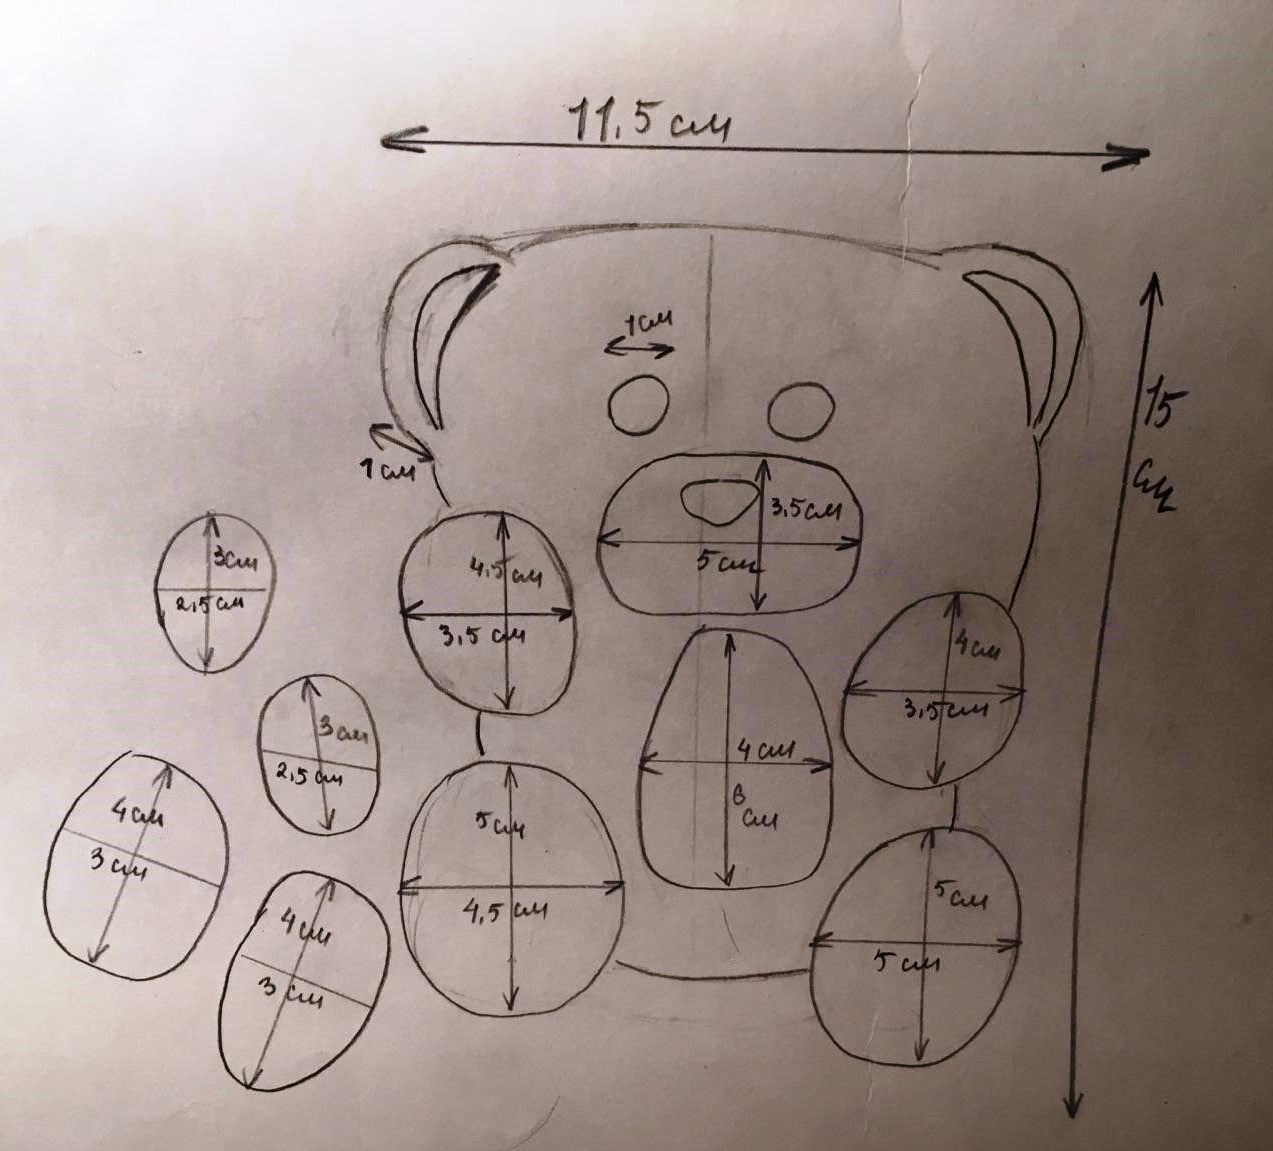 11.5 см
1см
15
см
1см
3,5см
5см
4,5см
3,5 см
3см
2,5см
4см
3,5см
3см
2,5см
4см
6
см
4см
3см
5см
4,5см
5см
5см
4см
3см